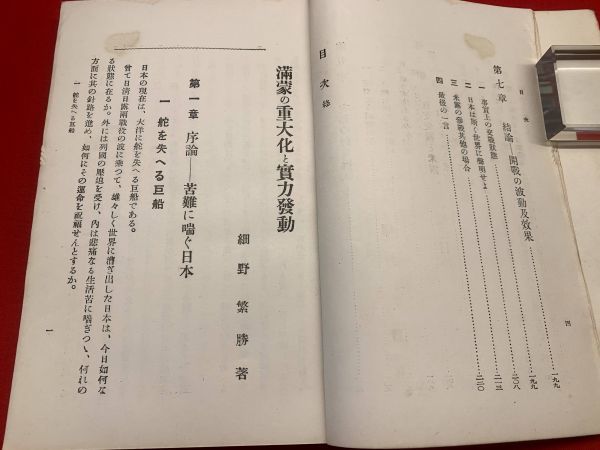 目次
第七章 結論――開戰の波動及效果……一九九
一 事實上の交戰狀態……一九九
二 日本は斯く世界に聲明せよ……二〇八
三 米露の參戰其他の場合……二一三
四 最後の一言……二二〇
四
目次 終
滿蒙の重大化と實力發動
細野繁勝著
第一章 序論――苦難に喘ぐ日本
一 舵を失へる巨船
日本の現在は、大洋に舵を失へる巨船である。
曾て日淸日露兩戰役の波に乘つて、雄々しく世界に漕ぎ出した日本は、今日如何な
る狀態に在るか。外には列國の壓迫を受け、內は悲痛なる生活苦に喘ぎつゝ、何れの
方面に其の針路を進め、如何にその運命を祝福せんとするか。
一 舵を失へる巨船
一